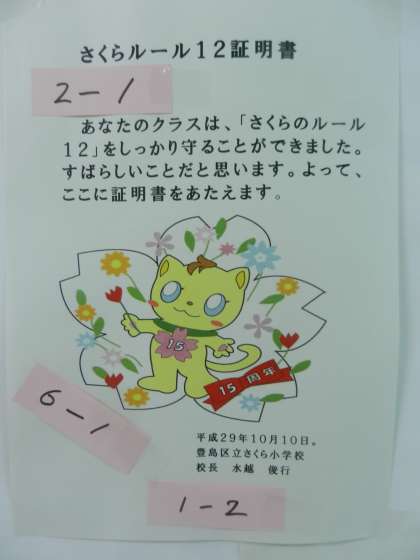 さくらルール12証明書
2-1
あなたのクラスは、「さくらのルール
12」をしっかり守ることができました。
すばらしいことだと思います。よって、
ここに証明書をあたえます。
15
15周年
6-1
平成29年10月10日。
豊島区立さくら小学校
校長 水越 俊行
1-2